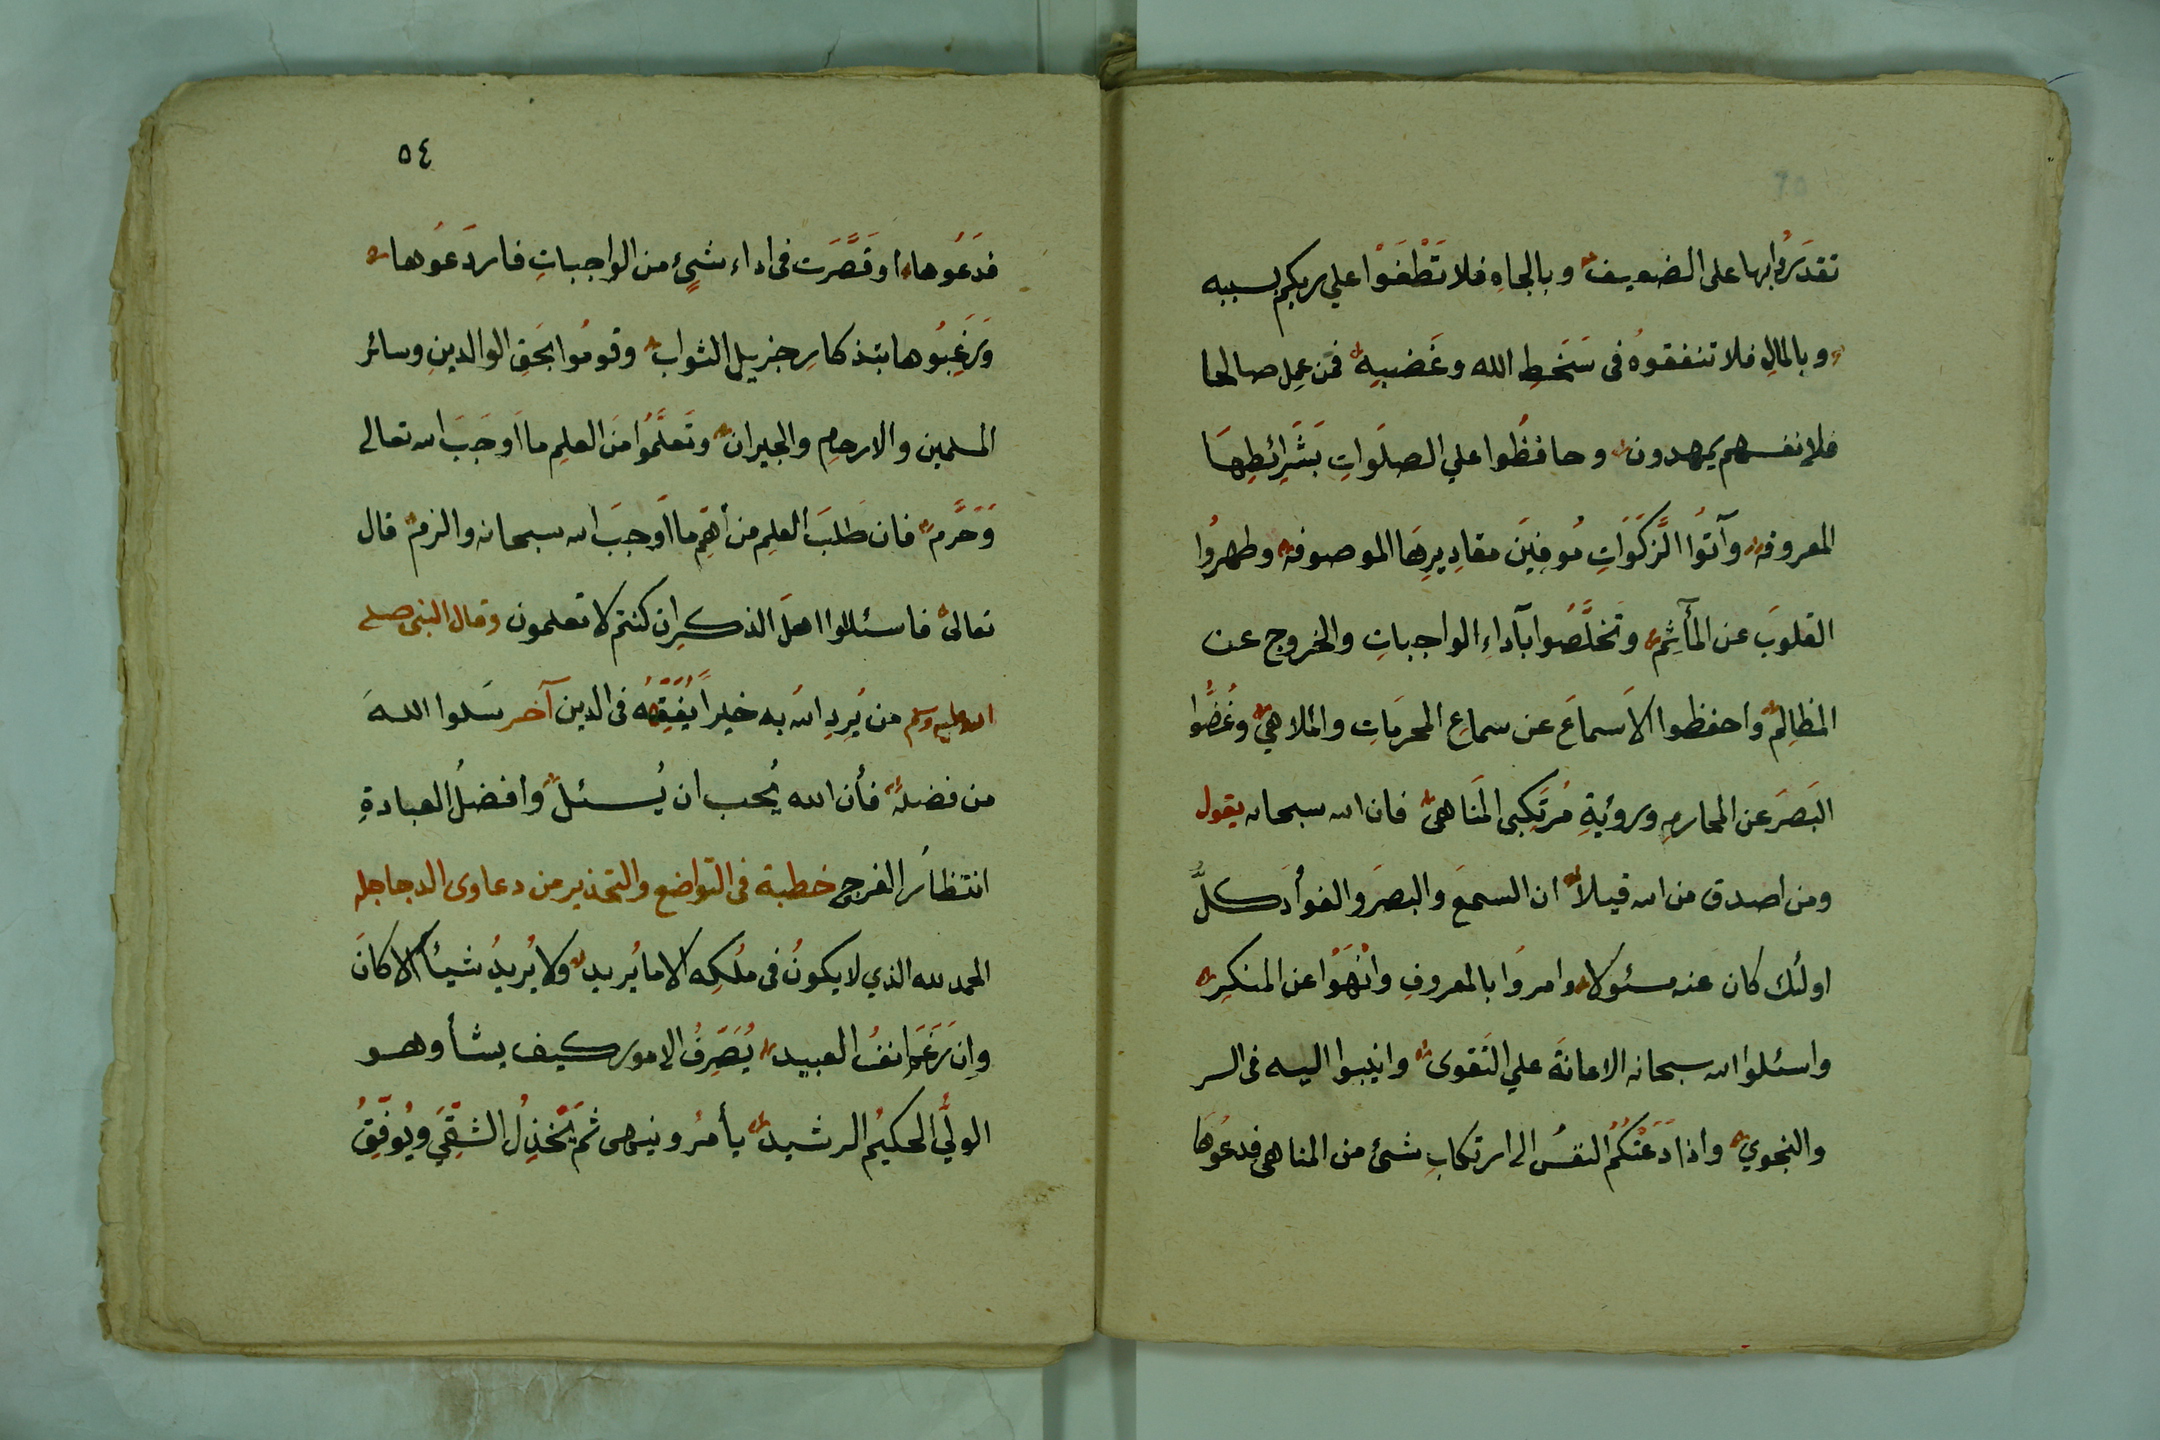 تقدَرُوا بها على الضعيف وبالجاهِ فلا تَطْغَوْا علي ربكم بسببه
وبالمالِ فلا تنفقوهُ فى سَخَطِ الله وغَضبِهِ فمَن عمِل صالحا
فلانفسهم يمهدون وحافظُوا علي الصلَواتِ بَشَرِائطِهَا
المعروفه وآتوُا الزَّكَوَاتِ مُوفِينَ مقادِيرِهَا الموصوفه وطهرُوا
القلوبَ عن المأثِم وتَخلَّصُوا بآداءِ الواجباتِ والخروج عن
المظالِم واحفظوا الاَسماعَ عن سماعِ المحرمَاتِ والملاهى وغُضُّوا
البَصَرَ عن المحارمِ ورويةِ مُرتَكِبى المَناهى فان الله سبحانه يقول
ومن اصدق من الله قيلاً ان السمعَ والبصَر والفوأدَ كلُّ
اولئك كان عنه مسئولا وامروُا بالمعروفِ وانْهَوْا عن المنكرِ
واسئلوا الله سبحانه الاعانَةَ علي التَقوى وانيبوا اليه فى السر
والنجوي واذا دَعَتْكُمُ النفسُ الى ارتكابِ شئ من المناهى فدعُوهَا
٥٤
فدَعُوها اوقَصَّرَت فى اداء شيٍئ من الواجباتِ فاردَعوُها
وَرَغِّبُوها بتذكارِ جزيل الثواب وقومُوا بحَقِ الوالدينِ وسائر
المسلمين والارحامِ والجيران وتَعلَّمُوا منَ العلمِ ما اَوجَبَ الله تعالى
وَحَرَّم فان طَلبَ العلمِ من أهَمِّ ما اَوجبَ الله سبحانه والزم قال
تعالى فاسئلوا اهلَ الذكرِ ان كنتم لا تعلمون وقال النبى صلى
الله عليه وسلم من يُرِدِ اللهُ به خيراً يُفَقِّهْهُ فى الدين آخر سَلوا اللهَ
من فضله فأن الله يُحب ان يُسئلَ وافضلُ العبادةِ
انتظاُر الفرج خطبة فى التواضع والتحذير من دعاوى الدجاجله
الحمد لله الذي لا يكونُ فى مُلكِه الا ما يُريد ولا يُريدُ شيئاً الا كانَ
وإن رَغمَ انفُ العبيد يُصَرِّفُ الامور كيف يشأ وهو
الوليُّ الحكيُم الرشيد يأمرُ وينهى ثم يَخْذِلُ الشقِّيَ ويُوَفِّقُ